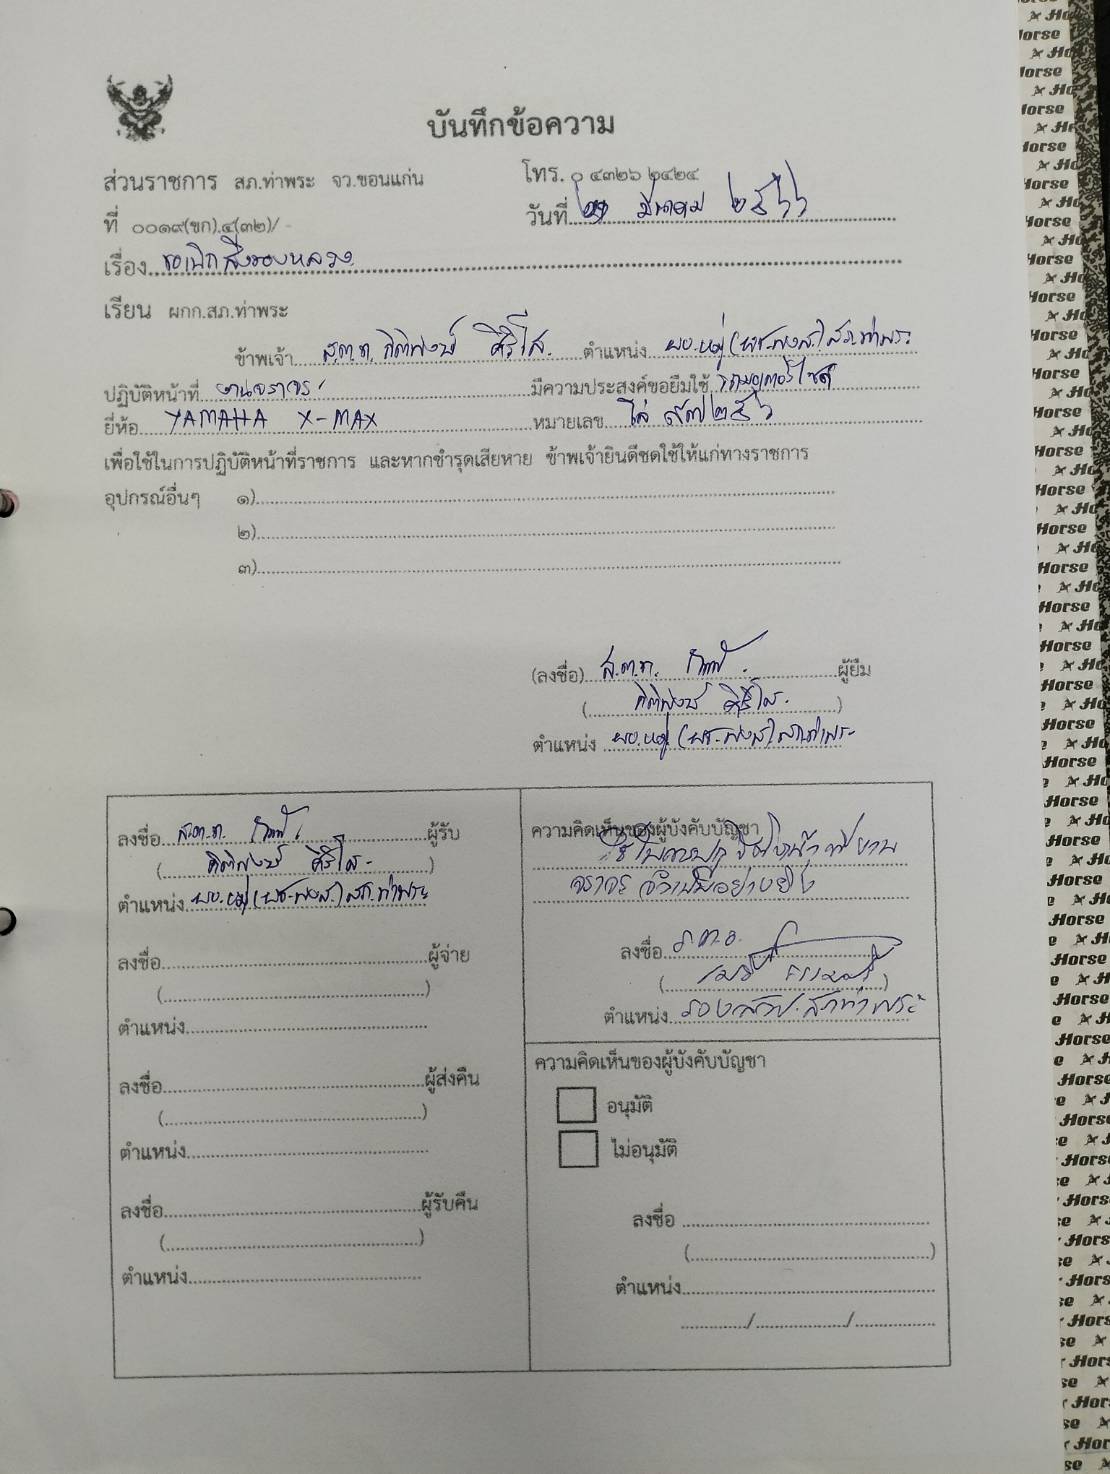 บันทึกข้อความ
ส่วนราชการ สภ.ท่าพระ จว.ขอนแก่น โทร. ๐ ๔๓๒๖ ๒๔๒๔
ที่ ๐๐๑๙(ขก).๔(๓๒)/- วันที่ มีนาคม ๒๕๖๖
เรื่อง ขอเบิกสิ่งของหลวง
เรียน ผกก.สภ.ท่าพระ
ข้าพเจ้า ส.ต.ท. กิตติพงษ์ ศิริโส ตำแหน่ง ผบ.หมู่ สภ.ท่าพระ
ปฏิบัติหน้าที่ งานจราจร มีความประสงค์ขอยืมใช้ รถมอเตอร์ไซด์
ยี่ห้อ YAMAHA X-MAX หมายเลข โล่
เพื่อใช้ในการปฏิบัติหน้าที่ราชการ และหากชำรุดเสียหาย ข้าพเจ้ายินดีชดใช้ให้แก่ทางราชการ
อุปกรณ์อื่นๆ ๑)
๒)
๓)
(ลงชื่อ) ส.ต.ท. ผู้ยืม
(กิตติพงษ์ ศิริโส)
ตำแหน่ง ผบ.หมู่ สภ.ท่าพระ
ลงชื่อ ส.ต.ท. ผู้รับ
(กิตติพงษ์ ศิริโส)
ตำแหน่ง ผบ.หมู่ สภ.ท่าพระ
ลงชื่อ ผู้จ่าย
( )
ตำแหน่ง
ลงชื่อ ผู้ส่งคืน
( )
ตำแหน่ง
ลงชื่อ ผู้รับคืน
( )
ตำแหน่ง
ความคิดเห็นของผู้บังคับบัญชา
ใช้ในการปฏิบัติหน้าที่งาน
จราจร
ลงชื่อ ร.ต.อ.
ตำแหน่ง สภ.ท่าพระ
ความคิดเห็นของผู้บังคับบัญชา
อนุมัติ
ไม่อนุมัติ
ลงชื่อ
( )
ตำแหน่ง
/ /
Horse